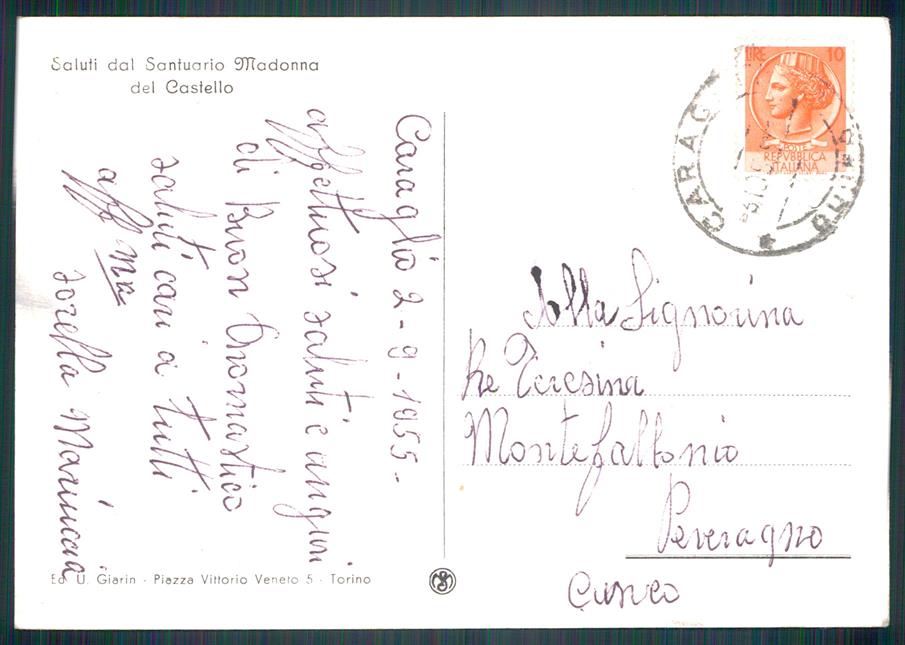 Saluti dal Santuario Madonna
del Castello
Caraglio 2-9-1955-
affettuosi saluti e auguri
di Buon Onomastico
saluti cari a tutti
aff ma
sorella Mariuccia
Ed. U. Giarin - Piazza Vittorio Veneto 5 - Torino
LIRE 10
POSTE
REPVBBLICA
ITALIANA
CARAG
Alla Signorina
Re Teresina
Montefallonio
Peveragno
Cuneo